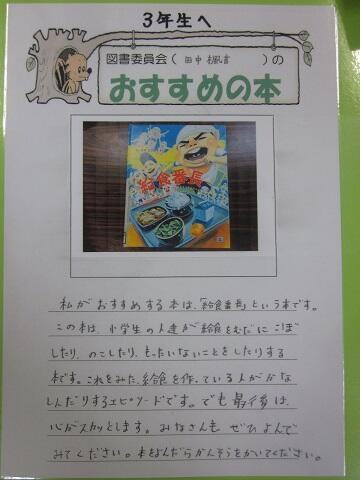 3年生へ
図書委員会(田中 )の
おすすめの本
給食番長
私がおすすめする本は、「給食番長」という本です。
この本は、小学生の人達が給食をむだにこぼ
したり、のこしたり、もったいないことをしたりする
本です。これをみた、給食を作っている人がかな
しんだりするエピソードです。でも最後は、
心がスカッとします。みなさんも ぜひよんで
みてください。本をよんだらかんそうをかいてください。